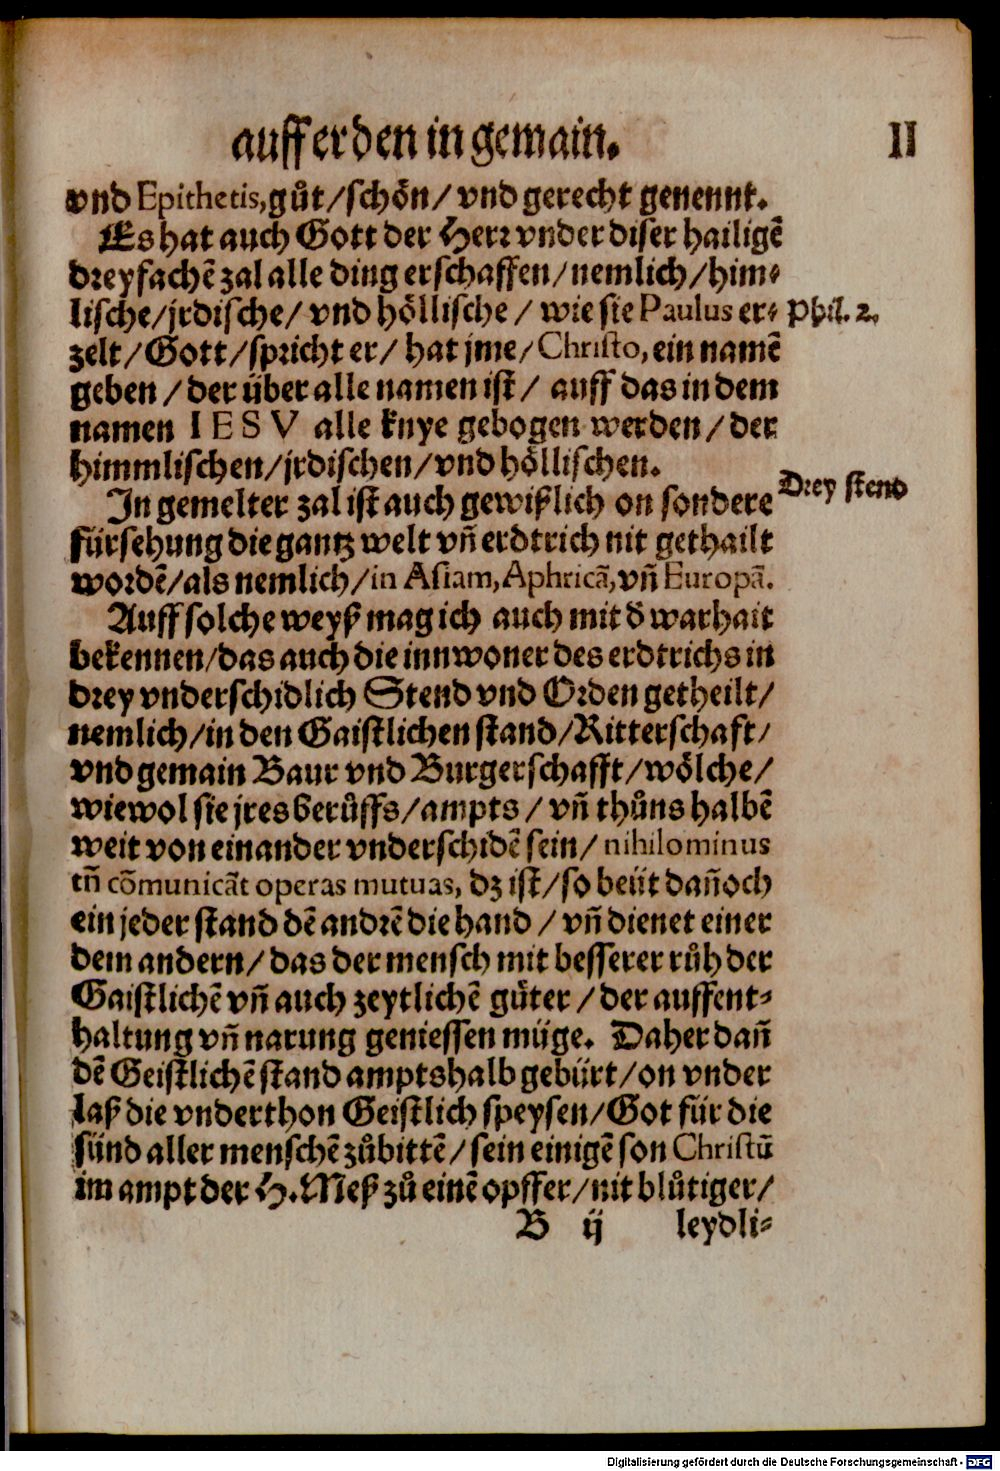 auff erden in gemain. II
vnd Epithetis, gůt/schön/ vnd gerecht genennt.
Es hat auch Gott der Herr vnder diser hailigẽ
dreyfachẽ zal alle ding erschaffen/nemlich/him⸗
lische/jrdische/ vnd höllische / wie sie Paulus er⸗ Phil. 2.
zelt/Gott/spricht er/ hat jme/Christo, ein namẽ
geben / der über alle namen ist/ auff das in dem
namen IESV alle knye gebogen werden/ der
himmlischen/jrdischen/vnd höllischen.
In gemelter zal ist auch gewißlich on sondere Drey stend
fürsehung die gantz welt vñ erdtrich nit gethailt
wordẽ/als nemlich/in Asiam, Aphricã, vñ Europã.
Auff solche weyß mag ich auch mit đ warhait
bekennen/das auch die innwoner des erdtrichs in
drey vnderschidlich Stend vnd Orden getheilt/
nemlich/in den Gaistlichen stand/Ritterschaft/
vnd gemain Baur vnd Burgerschafft/wölche/
wiewol sie jres berůffs/ampts / vñ thůns halbẽ
weit von einander vnderschidẽ sein/ nihilominus
tñ cõmunicãt operas mutuas, dz ist/so beüt dañoch
ein jeder stand dẽ andrẽ die hand / vñ dienet einer
dem andern/das der mensch mit besserer růh der
Gaistlichẽ vñ auch zeytlichẽ güter / der auffent⸗
haltung vñ narung geniessen müge. Daher dañ
dẽ Geistlichẽ stand amptshalb gebürt/on vnder
laß die vnderthon Geistlich speysen/Got für die
sünd aller menschẽ zůbittẽ/sein einigẽ son Christũ
im ampt der H. Meß zů einẽ opffer/nit blůtiger/
B ij leydli⸗
Digitalisierung gefördert durch die Deutsche Forschungsgemeinschaft - DFG